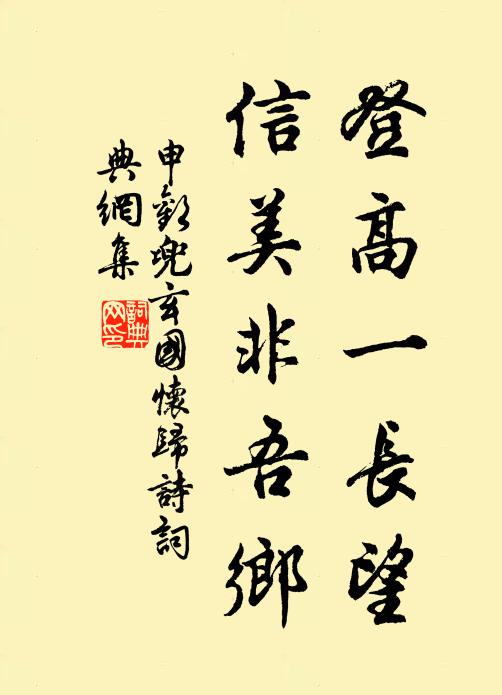 登高一長望
信美非吾鄉
申歡兜玄國懷歸詩詞
典網集
詞典
网印